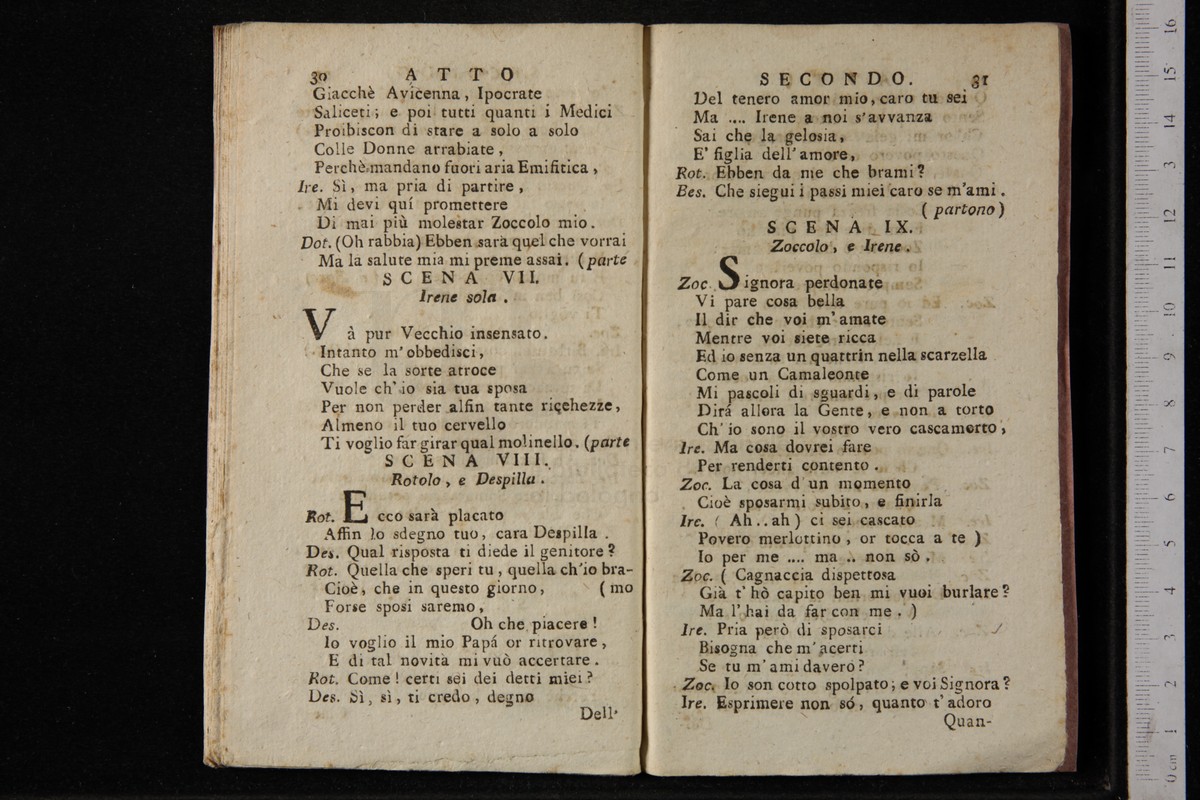 30 ATTO
Giacchè Avicenna, Ipocrate
Saliceti; e poi tutti quanti i Medici
Proibiscon di stare a solo a solo
Colle Donne arrabiate,
Perchè mandano fuori aria Emifitica,
Ire. Sì, ma pria di partire,
Mi devi quí promettere
Di mai più molestar Zoccolo mio.
Dot. (Oh rabbia) Ebben sarà quel che vorrai
Ma la salute mia mi preme assai. (parte
SCENA VII.
Irene sola.
Và pur Vecchio insensato.
Intanto m'obbedisci,
Che se la sorte atroce
Vuole ch'io sia tua sposa
Per non perder alfin tante riccehezze,
Almeno il tuo cervello
Ti voglio far girar qual molinello. (parte
SCENA VIII.
Rotolo, e Despilla.
Rot. Ecco sarà placato
Affin lo sdegno tuo, cara Despilla.
Des. Qual risposta ti diede il genitore?
Rot. Quella che speri tu, quella ch'io bra-
Cioè, che in questo giorno, (mo
Forse sposi saremo,
Des. Oh che piacere!
Io voglio il mio Papá or ritrovare,
E di tal novità mi vuò accertare.
Rot. Come! certi sei dei detti miei?
Des. Sì, sì, ti credo, degno
Dell'
SECONDO. 31
Del tenero amor mio, caro tu sei
Ma .... Irene a noi s'avvanza
Sai che la gelosia,
E' figlia dell'amore,
Rot. Ebben da me che brami?
Bes. Che siegui i passi miei caro se m'ami.
(partono)
SCENA IX.
Zoccolo, e Irene.
Zoc. Signora perdonate
Vi pare cosa bella
Il dir che voi m'amate
Mentre voi siete ricca
Ed io senza un quattrin nella scarzella
Come un Camaleonte
Mi pascoli di sguardi, e di parole
Dirá allora la Gente, e non a torto
Ch'io sono il vostro vero cascamorto,
Ire. Ma cosa dovrei fare
Per renderti contento.
Zoc. La cosa d'un momento
Cioè sposarmi subito, e finirla
Ire. (Ah..ah) ci sei cascato
Povero merlottino, or tocca a te)
Io per me .... ma .. non sò.
Zoc. (Cagnaccia dispettosa
Già t'hò capito ben mi vuoi burlare?
Ma l'hai da far con me.)
Ire. Pria però di sposarci
Bisogna che m'acerti
Se tu m'ami davero?
Zoc. Io son cotto spolpato; e voi Signora?
Ire. Esprimere non só, quanto t'adoro
Quan-
0 cm 1 2 3 4 5 6 7 8 9 10 11 12 13 14 15 16